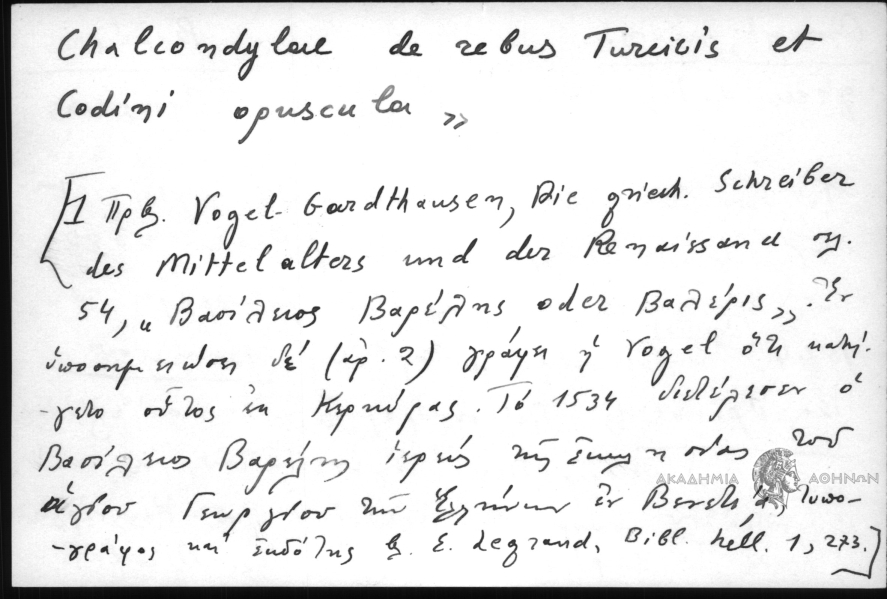 Chalcondylae de rebus Turcicis et
Codini opuscula »
[1 Πρβ. Vogel-Gardthausen, Die griech. Schreiber
des Mittelalters und der Renaissance σελ.
54, « Βασίλειος Βαρέλης oder Βαλέρις». Ἐν
ὑποσημειώσει δέ (ἀρ. 2) γράφει ἡ Vogel ὅτι κατή-
-γετο οὗτος ἐκ Κερκύρας. Τό 1534 διετέλεσεν ὁ
Βασίλειος Βαρέλης ἱερεύς τῆς ἐκκλησίας τοῦ
ἁγίου Γεωργίου τῶν Ἑλλήνων ἐν Βενετίᾳ, τυπο-
-γράφος καί ἐκδότης β. E. Legrand, Bibl. héll. 1, 273.]
ΑΚΑΔΗΜΙΑ ΑΘΗΝΩΝ